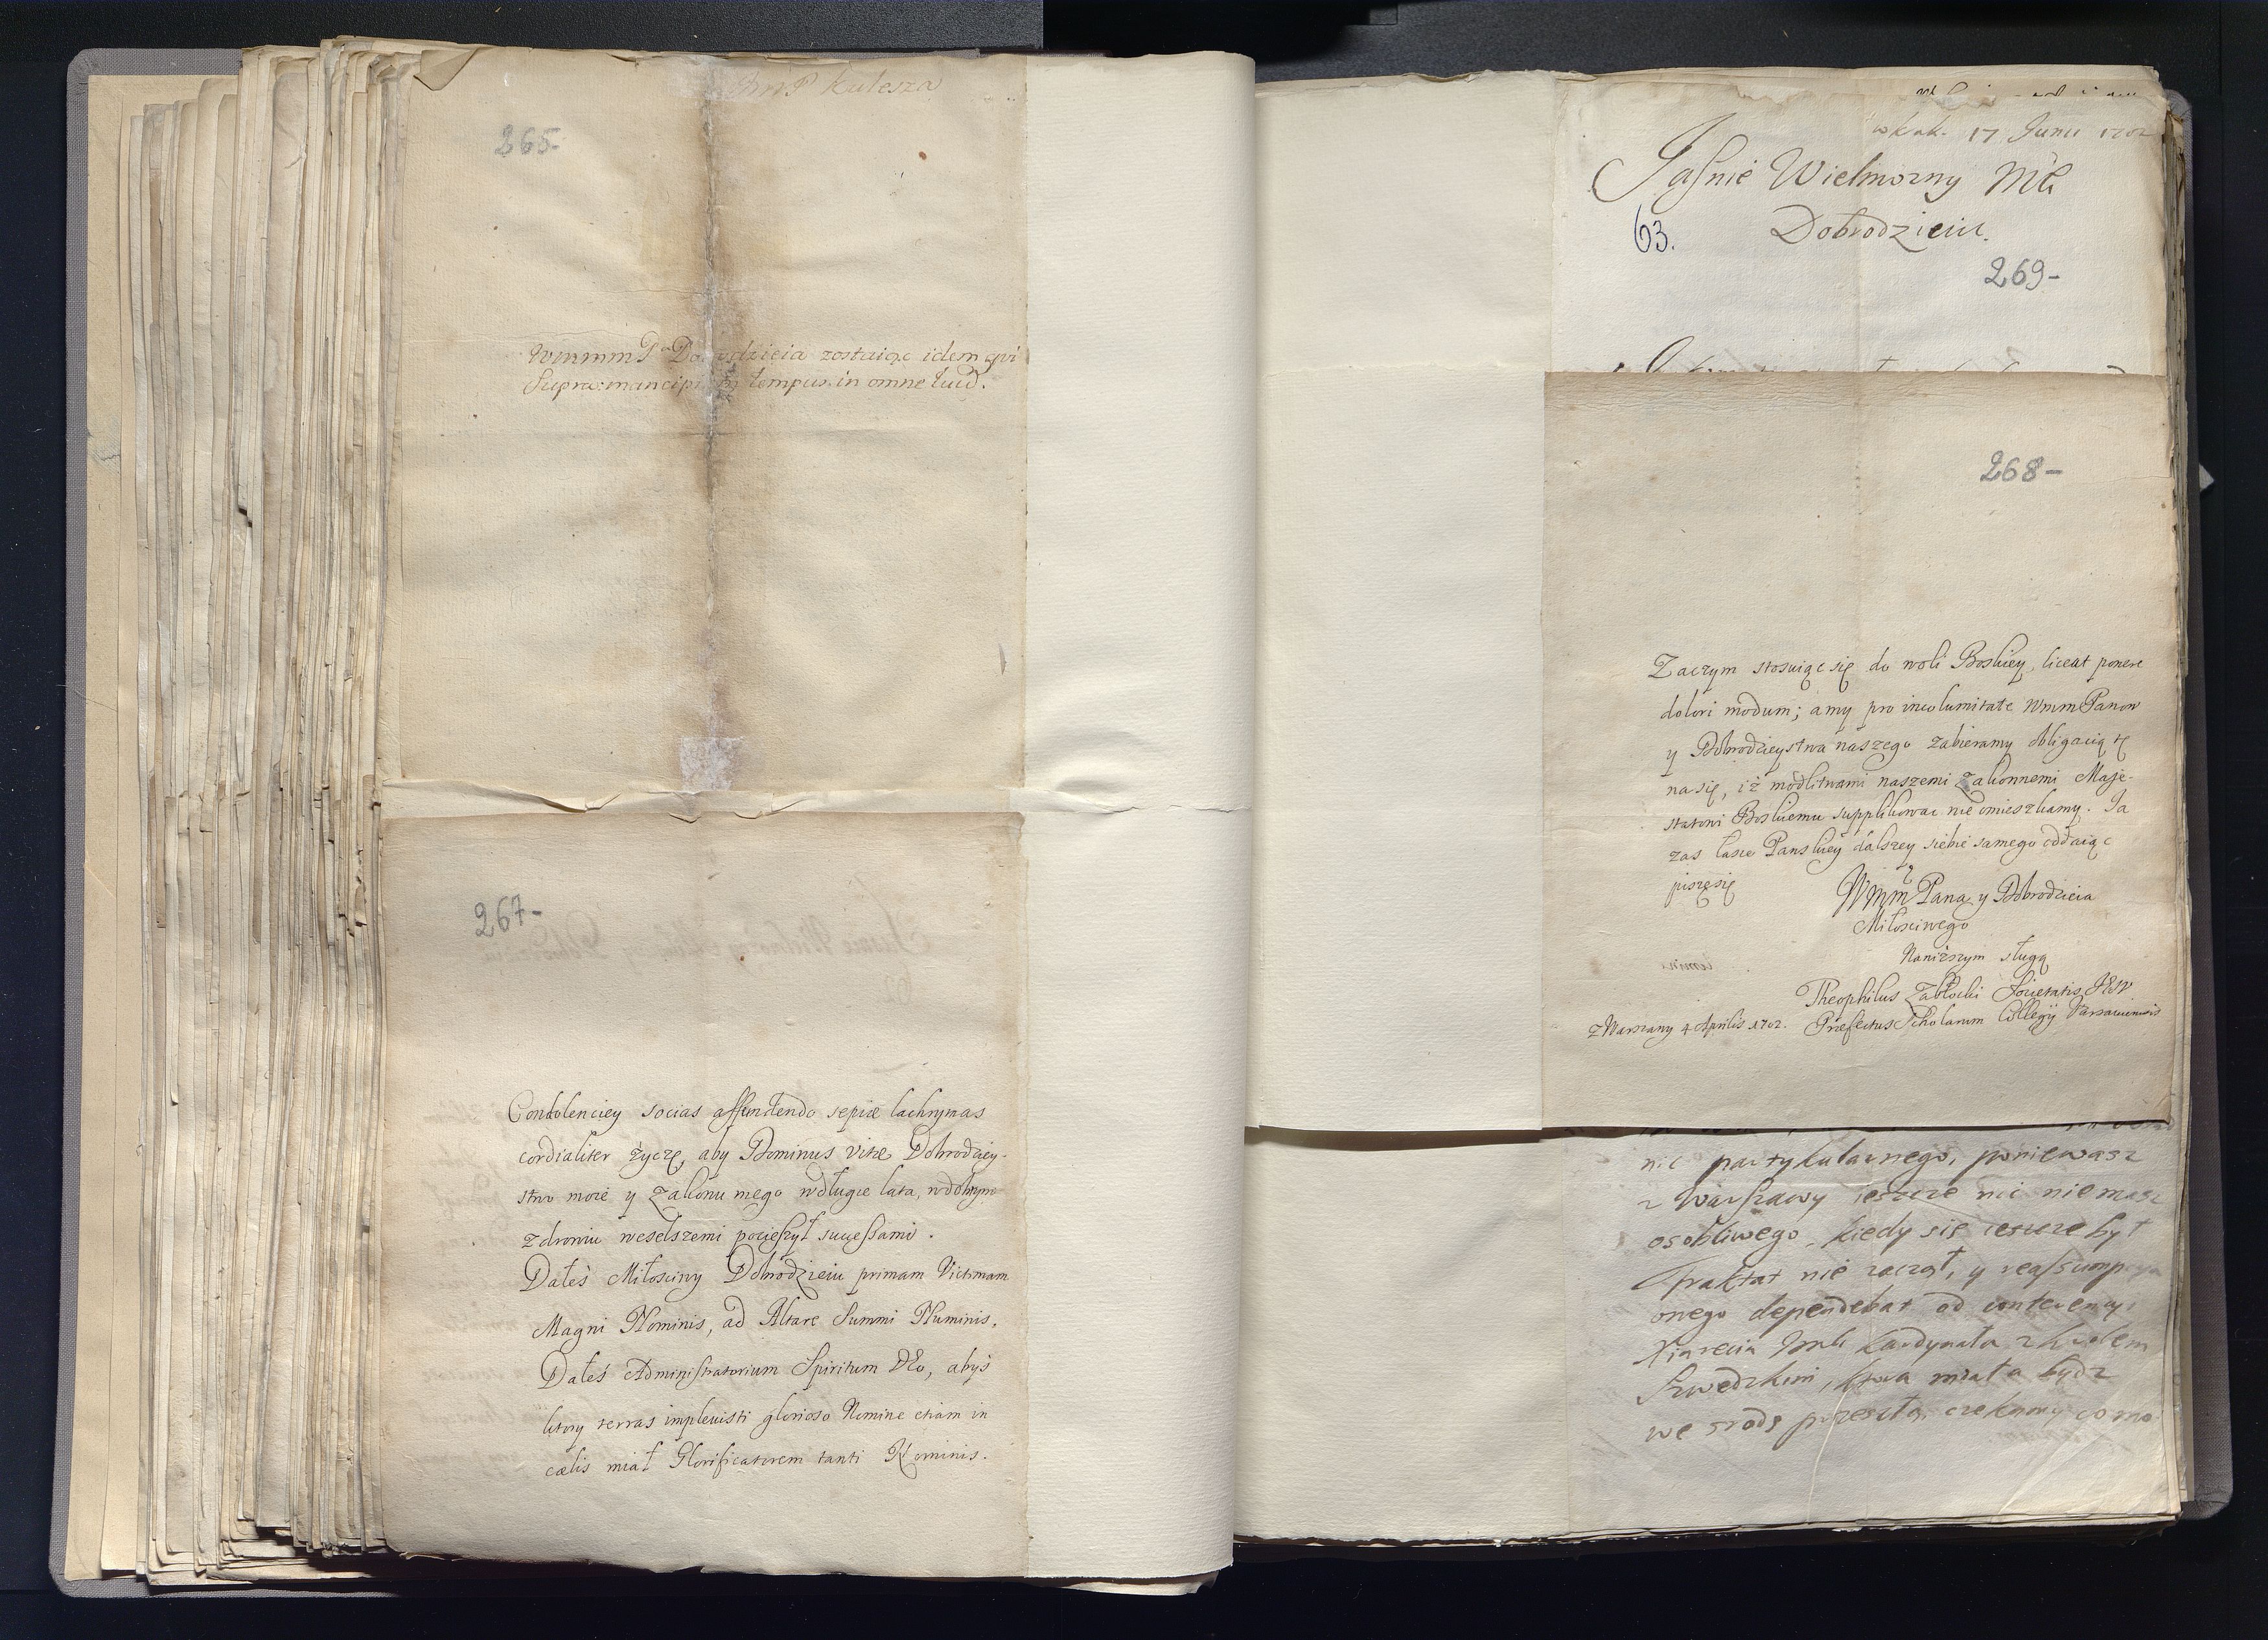 JmP Kulesza
265-
WmmmP Do odzieia zostaiąc idem qui
Supra: mancipi tempus in omne tuus.
267-
Condolenciey socias affundendo sepiæ lachrymas
cordialiter życzę, aby Dominus vitæ Dobrodziey-
stwo moie y Zakonu mego w długie lata, w dobrym
zdrowiu weselszemi pocieszył sucessami.
Dałeś Miłosciwy Dobrodzieiu primam Victimam
Magni Nominis, ad Altare Summi Numinis.
Dałeś Administratorium Spiritum DEo, abyś
ktory terras implevisti glorioso Nomine etiam in
cælis miał Glorificatorem tanti Nominis.
17 Junii 1702
Jaśnie Wielmozny Mći
63. Dobrodzieiu.
269-
268-
Zaczym stosuiąc się do woli Boskiey, liceat ponere
dolori modum; a my pro incolumitate WmmPanow
y Dobrodzieystwa naszego zabieramy obligacią tę
na się, iż modlitwami naszemi zakonnemi Maje-
statowi Boskiemu supplikowac nie omieszkamy. Ja
zas łasce Panskiey dalszey siebie samego oddaiąc
piszę się
Wmm Pana y Dobrodzieia
Miłosciwego
Naniższym sługą
Theophilus Zabłocki Societatis JESV
z Warszawy 4 Aprilis 1702. Præfectus Scholarum Collegij Varsaviensis
nic partykularnego, poniewasz
z Warszawy ieszcze nic niemasz
osobliwego, kiedy się ieszcze był
Traktat nie zaczął, y reassumpcya
onego dependebat od conferencyi
Xiązecia Jmći Kardynała z krolem
Szwedzkim, ktora miała bydz
we srodę przeszłą, czekamy co mo